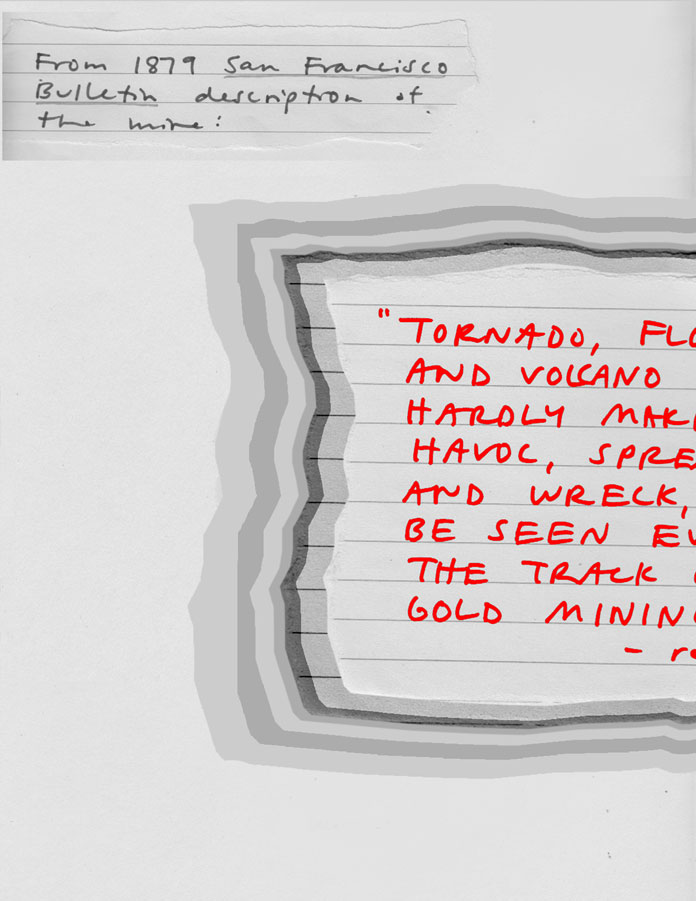 From 1879 San Francisco
Bulletin description of
the mine:
"TORNADO, FLO
AND VOLCANO
HARDLY MAK
HAVOC, SPRE
AND WRECK,
BE SEEN EV
THE TRACK
GOLD MINING
- re